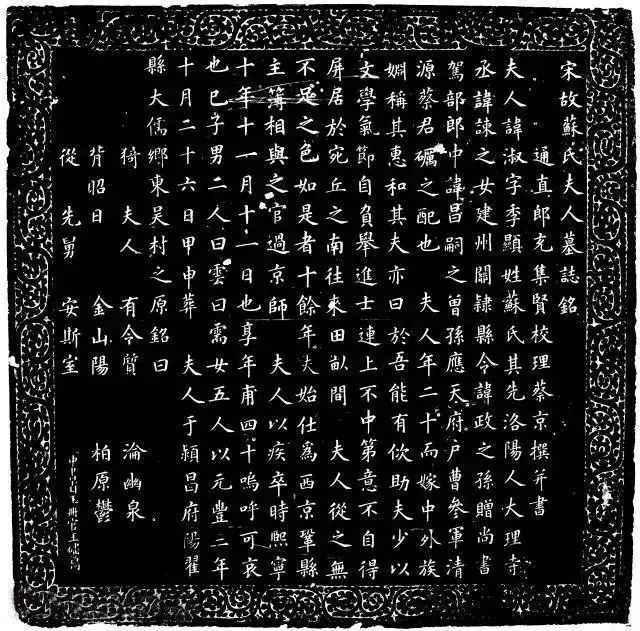 宋故蘇氏夫人墓誌銘
通直郎充集賢校理蔡京撰并書
夫人諱淑字季顯姓蘇氏其先洛陽人大理寺
丞諱諫之女建州關隸縣令諱政之孫贈尚書
駕部郎中諱昌嗣之曾孫應天府戶曹參軍清
源蔡君礪之配也 夫人年二十而嫁中外族
婣稱其惠和其夫亦曰於吾能有佽助夫少以
文學氣節自負舉進士連上不中第意不自得
屏居於宛丘之南往來田畝間 夫人從之無
不足之色如是者十餘年夫始仕為西京鞏縣
主簿相與之官過京師 夫人以疾卒時熙寧
十年十一月十一日也享年甫四十嗚呼可哀
也已子男二人曰雲曰需女五人以元豐二年
十月二十六日甲申葬 夫人于潁昌府陽翟
縣大儒鄉東吳村之原銘曰
猗 夫人 有令質 淪幽泉
背昭日 金山陽 柏原鬱
從 先舅 安斯室
中書省玉冊官王